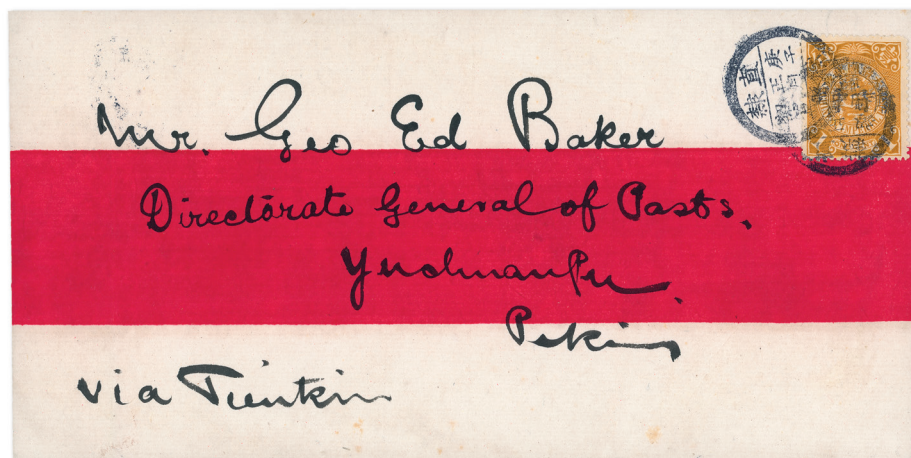 Mr. Geo Ed Baker
Directorate General of Posts,
Yuchuan Pu,
Peking
via Tientsin
直隸